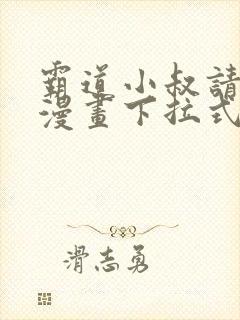 霸道小叔請
漫畫下拉式
滑志勇